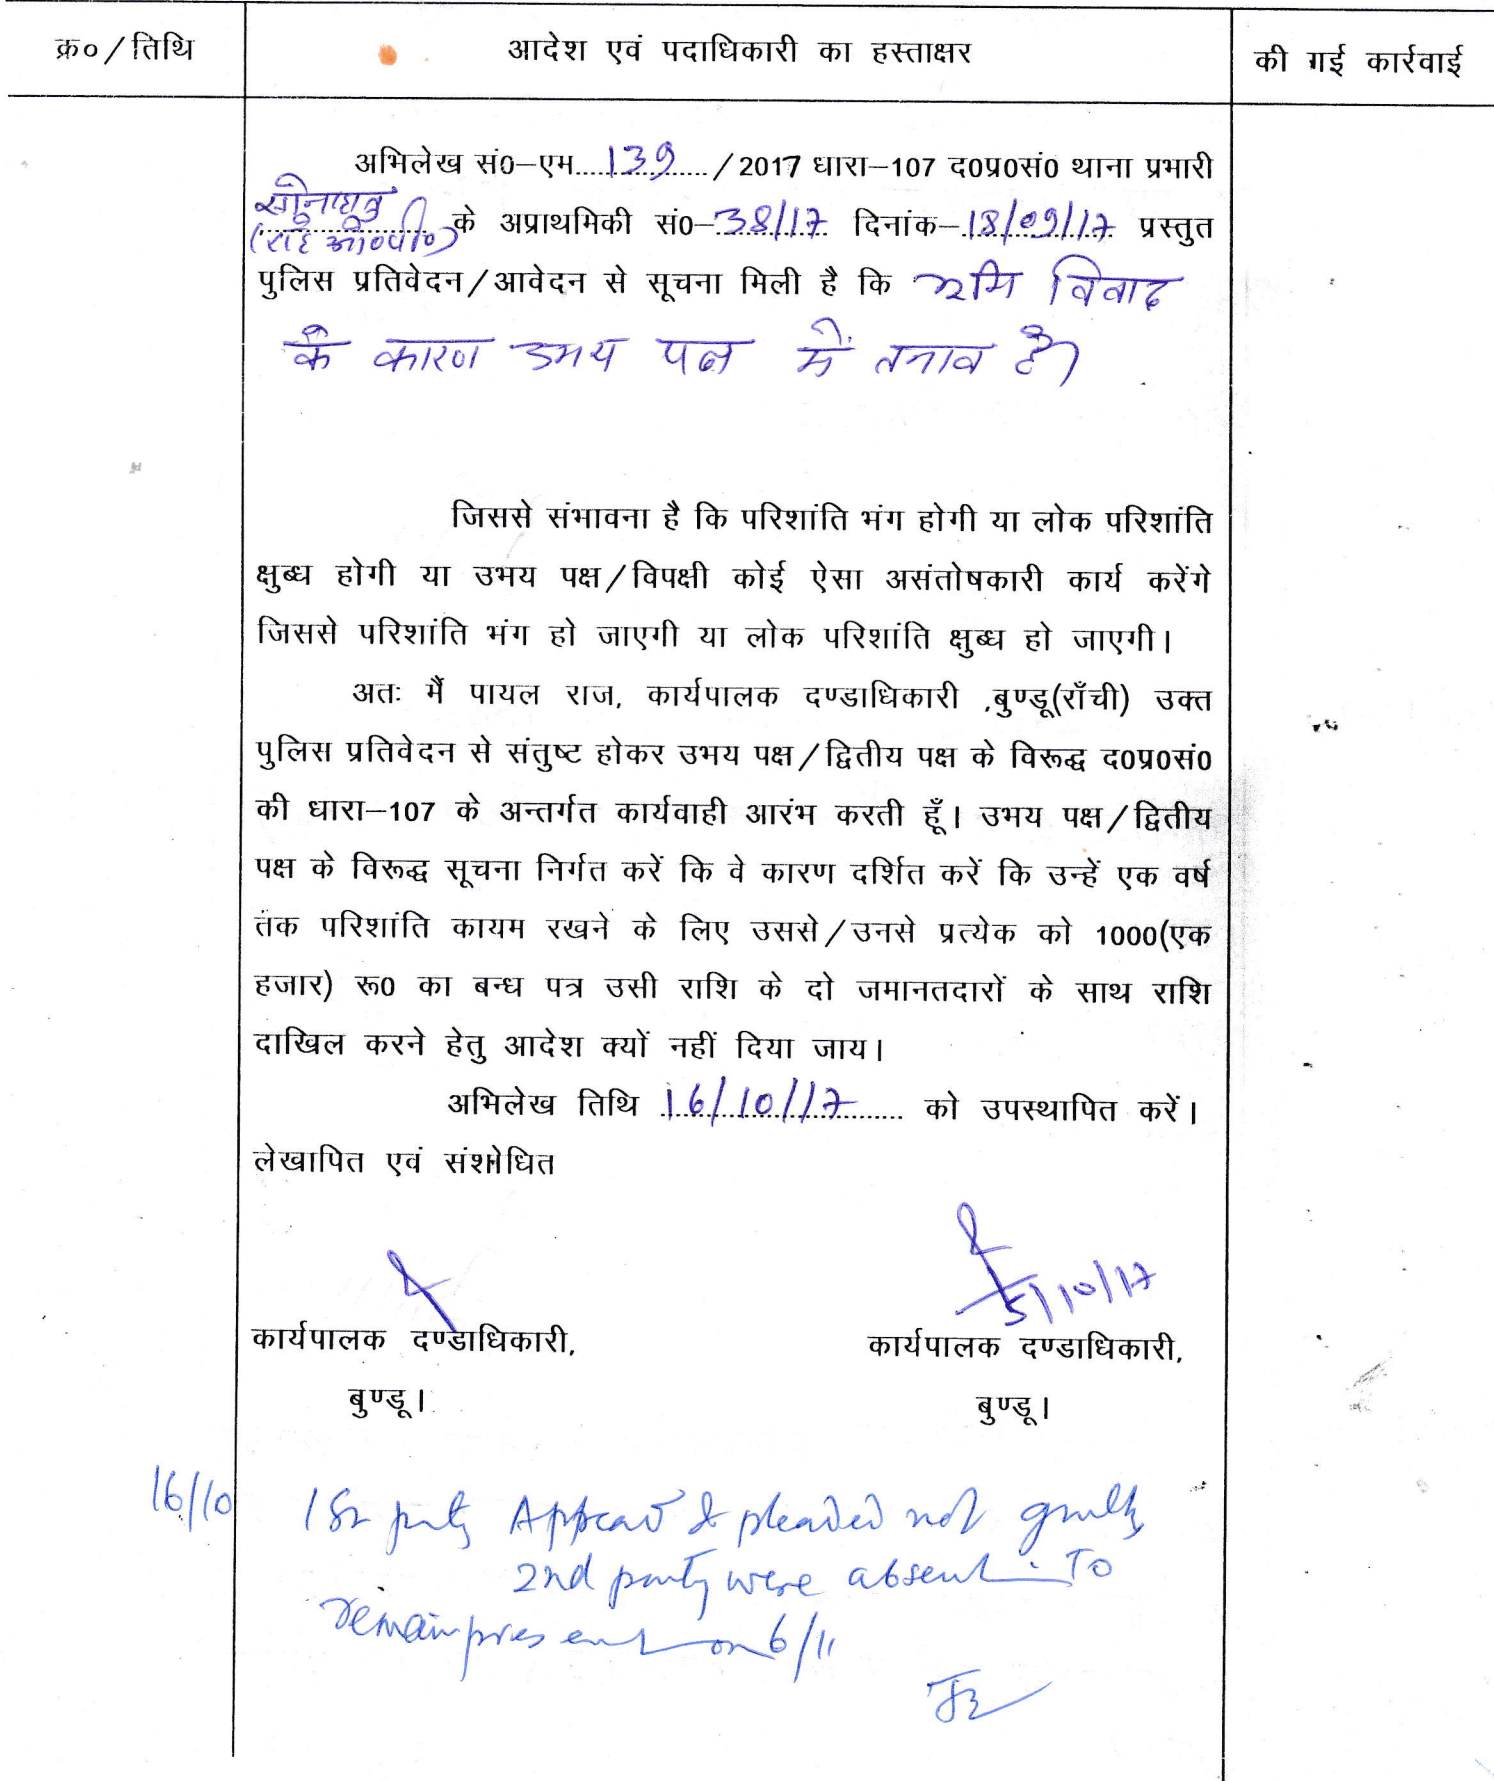 क्र० / तिथि
आदेश एवं पदाधिकारी का हस्ताक्षर
की गई कार्रवाई
अभिलेख सं०–एम....139..../2017 धारा–107 द०प्र०सं० थाना प्रभारी
सोनाहातु
(राहे ओ०पी०) के अप्राथमिकी सं०–38/17 दिनांक–18/09/17 प्रस्तुत
पुलिस प्रतिवेदन/आवेदन से सूचना मिली है कि भूमि विवाद
के कारण उभय पक्ष में तनाव है।
जिससे संभावना है कि परिशांति भंग होगी या लोक परिशांति
क्षुब्ध होगी या उभय पक्ष/विपक्षी कोई ऐसा असंतोषकारी कार्य करेंगे
जिससे परिशांति भंग हो जाएगी या लोक परिशांति क्षुब्ध हो जाएगी।
अतः मैं पायल राज, कार्यपालक दण्डाधिकारी ,बुण्डू(राँची) उक्त
पुलिस प्रतिवेदन से संतुष्ट होकर उभय पक्ष/द्वितीय पक्ष के विरूद्ध द०प्र०सं०
की धारा–107 के अन्तर्गत कार्यवाही आरंभ करती हूँ। उभय पक्ष/द्वितीय
पक्ष के विरूद्ध सूचना निर्गत करें कि वे कारण दर्शित करें कि उन्हें एक वर्ष
तक परिशांति कायम रखने के लिए उससे/उनसे प्रत्येक को 1000(एक
हजार) रू० का बन्ध पत्र उसी राशि के दो जमानतदारों के साथ राशि
दाखिल करने हेतु आदेश क्यों नहीं दिया जाय।
अभिलेख तिथि 16/10/17 को उपस्थापित करें।
लेखापित एवं संशोधित
5/10/17
कार्यपालक दण्डाधिकारी,
कार्यपालक दण्डाधिकारी,
बुण्डू।
बुण्डू।
16/10
1st party Appeared & pleaded not guilty
2nd party were absent. To
remain present on 6/11